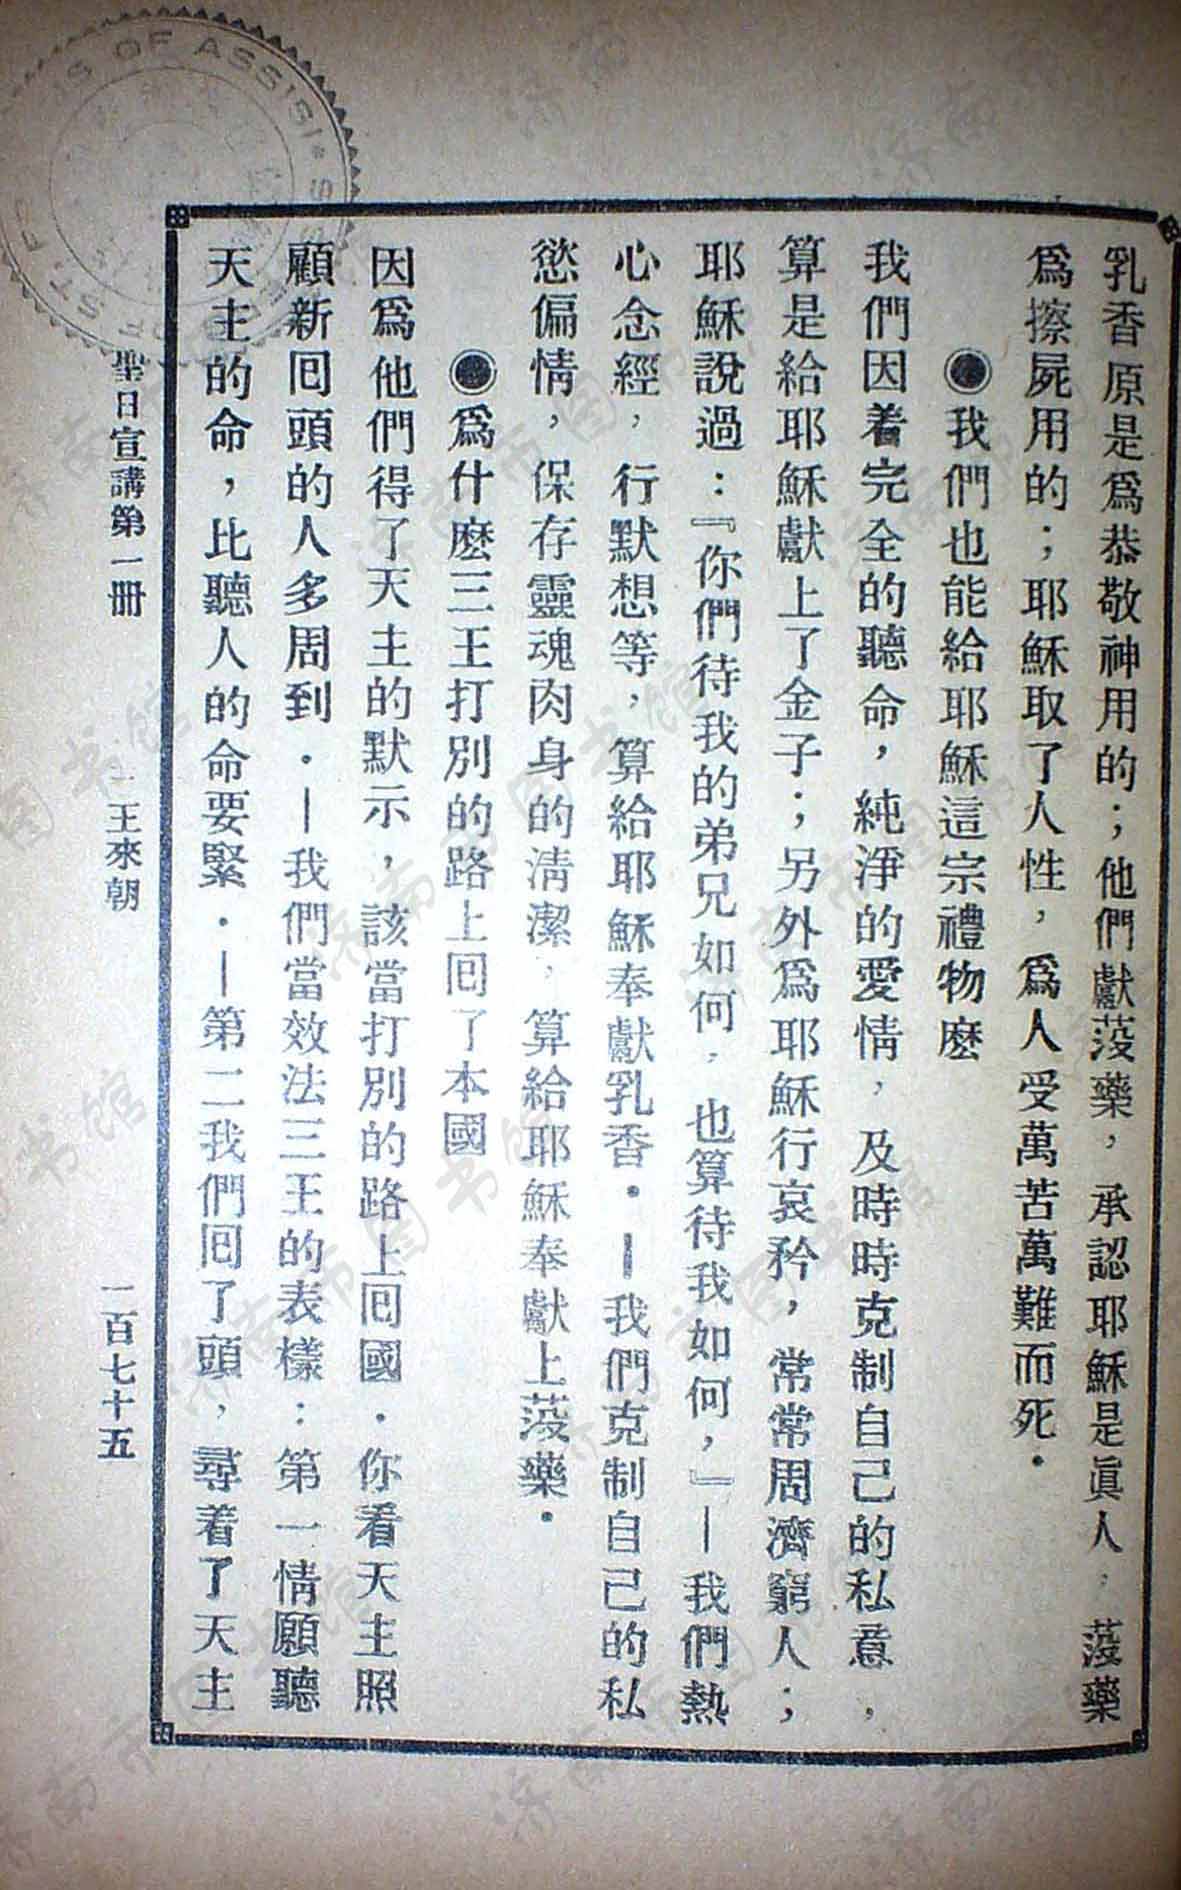 乳香原是爲恭敬神用的；他們獻蔆藥，承認耶穌是眞人，蔆藥
爲擦屍用的；耶穌取了人性，爲人受萬苦萬難而死．
◉我們也能給耶穌這宗禮物麽
我們因着完全的聽命，純淨的愛情，及時時克制自己的私意，
算是給耶穌獻上了金子；另外爲耶穌行哀矜，常常周濟窮人；
耶穌說過：『你們待我的弟兄如何，也算待我如何，』—我們熱
心念經，行默想等，算給耶穌奉獻乳香．—我們克制自己的私
慾偏情，保存靈魂肉身的淸潔，算給耶穌奉獻上蔆藥．
◉爲什麽三王打別的路上囘了本國
因爲他們得了天主的默示，該當打別的路上囘國．你看天主照
顧新囘頭的人多周到．—我們當效法三王的表樣：第一情願聽
天主的命，比聽人的命要緊．—第二我們囘了頭，尋着了天主
聖日宣講第一冊
王來朝
一百七十五
OF ASSISI
ST. F
济南市图书馆